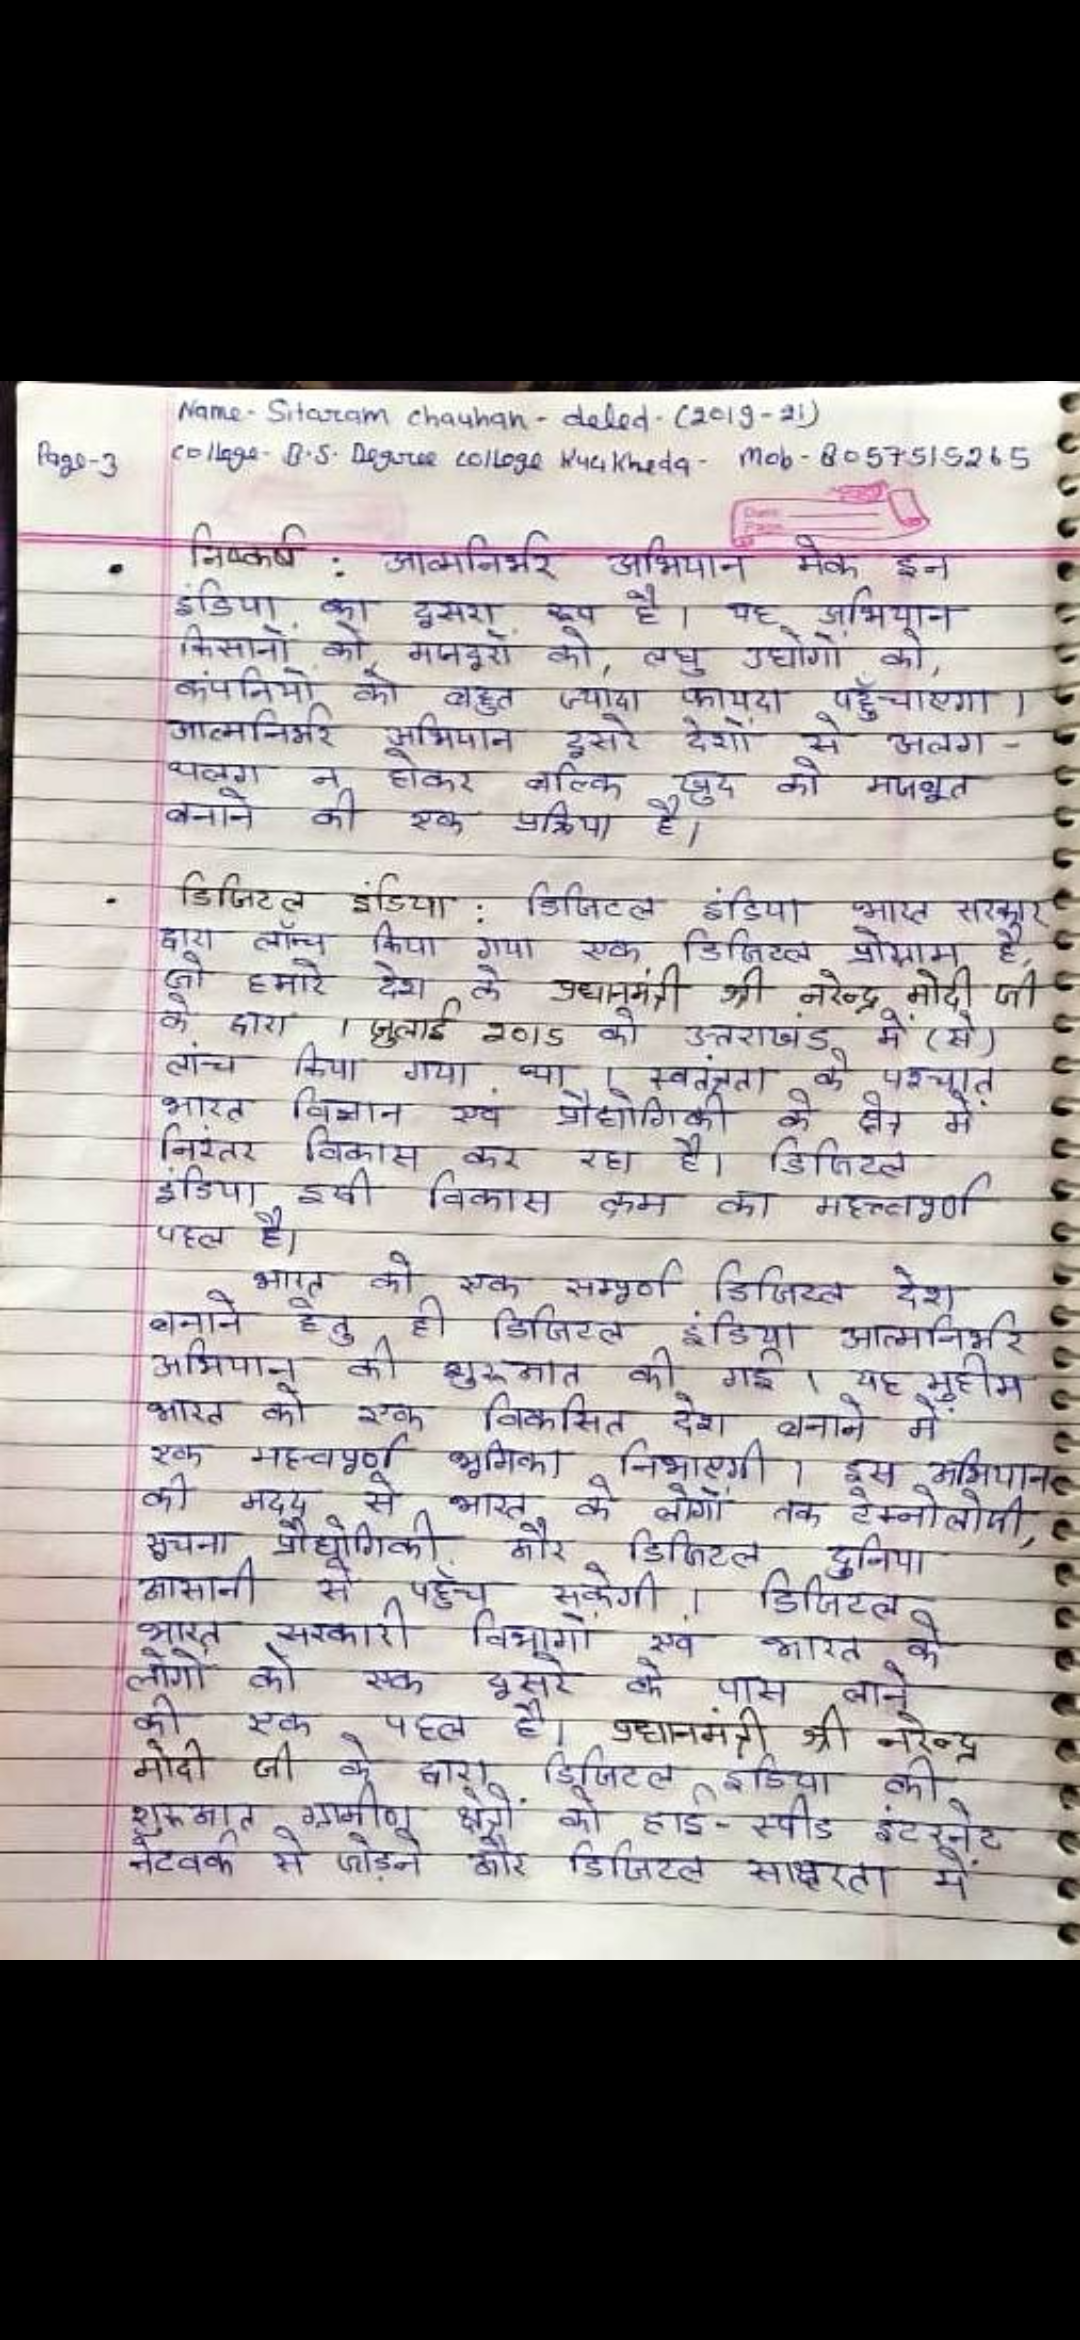 Name- Sitaram Chauhan - deled - (2019-21)
Page-3 College- B.S. Degree College Kuakheda - Mob - 8057515265
Date
Page
• निष्कर्ष : आत्मनिर्भर अभियान मेक इन
इंडिया का दूसरा रूप है। यह अभियान
किसानों को, मजदूरों को, लघु उद्योगों को,
कंपनियों को बहुत ज्यादा फायदा पहुँचाएगा।
आत्मनिर्भर अभियान दूसरे देशों से अलग-
थलग न होकर बल्कि खुद को मजबूत
बनाने की एक प्रक्रिया है।
• डिजिटल इंडिया : डिजिटल इंडिया भारत सरकार
द्वारा लॉन्च किया गया एक डिजिटल प्रोग्राम है,
जो हमारे देश के प्रधानमंत्री श्री नरेन्द्र मोदी जी
के द्वारा 1 जुलाई 2015 को उत्तराखंड में (से)
लांच किया गया था। स्वतंत्रता के पश्चात्
भारत विज्ञान एवं प्रौद्योगिकी के क्षेत्र में
निरंतर विकास कर रहा है। डिजिटल
इंडिया इसी विकास क्रम का महत्त्वपूर्ण
पहल है।
भारत को एक सम्पूर्ण डिजिटल देश
बनाने हेतु ही डिजिटल इंडिया आत्मनिर्भर
अभियान की शुरूआत की गई। यह मुहीम
भारत को एक विकसित देश बनाने में
एक महत्वपूर्ण भूमिका निभाएगी। इस अभियान
की मदद से भारत के लोगों तक टेक्नोलोजी,
सूचना प्रौद्योगिकी और डिजिटल दुनिया
आसानी से पहुँच सकेगी। डिजिटल
भारत सरकारी विभागों एवं भारत के
लोगों को एक दूसरे के पास लाने
की एक पहल है। प्रधानमंत्री श्री नरेन्द्र
मोदी जी के द्वारा डिजिटल इंडिया की
शुरूआत ग्रामीण क्षेत्रों को हाई-स्पीड इंटरनेट
नेटवर्क से जोड़ने और डिजिटल साक्षरता में